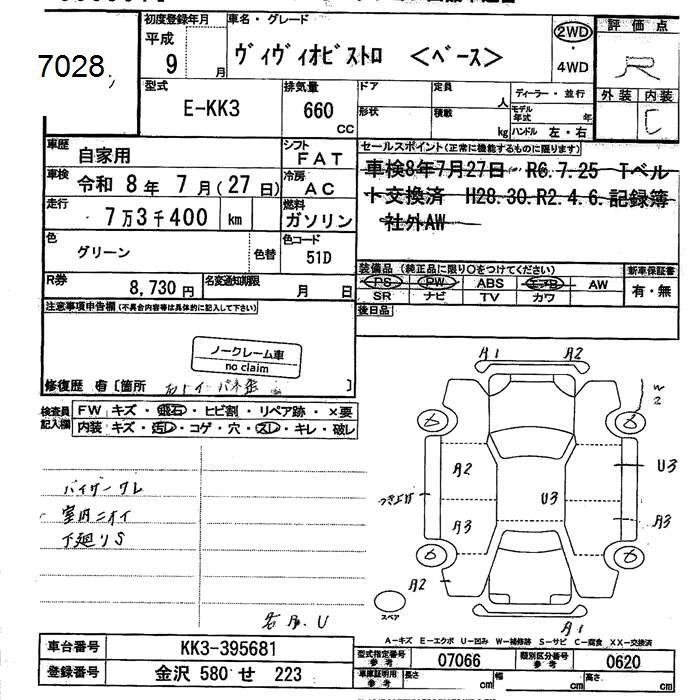 7028
初度登録年月
平成 9 月
車名・グレード
ヴィヴィオビストロ <ベース>
2WD
・
4WD
評価点
R
外装 内装
C
型式
E-KK3
排気量
660
CC
ドア
形状
定員
人
積載
kg
ディーラー・並行
モデル年式 年
ハンドル 左・右
車歴
自家用
シフト
FAT
車検
令和 8年 7月(27日)
冷房
AC
走行
7万3千400 km
燃料
ガソリン
色
グリーン
色替
色コード
51D
R券
8,730円
名変通知期限
月 日
セールスポイント(正常に機能するものに限ります)
車検8年7月27日 R6.7.25 Tベル
ト交換済 H28.30.R2.4.6.記録簿
社外AW
装備品(純正品に限り○をつけてください)
PS PW ABS エアB AW
SR ナビ TV カワ
新車保証書
有・無
後日品
注意事項申告欄(不具合内容等は具体的に記入して下さい)
ノークレーム車
no claim
修復歴 有 [箇所 ]
検査員
記入欄
FW キズ・飛石・ヒビ割・リペア跡・×要
内装 キズ・汚レ・コゲ・穴・スレ・キレ・破レ
バイザーワレ
室内ニオイ
下廻りS
各部.U
A1 A2
W2
A2
U3
U3
つき上げ
A3
A3
A2
A1
6
6
6
6
スペア
A-キズ E-エクボ U-凹み W-補修跡 S-サビ C-腐食 XX-交換済
車台番号
KK3-395681
登録番号
金沢 580 せ 223
型式指定番号
参考
07066
類別区分番号
参考
0620
車庫証明用
参考
長さ cm
幅 cm
高さ cm